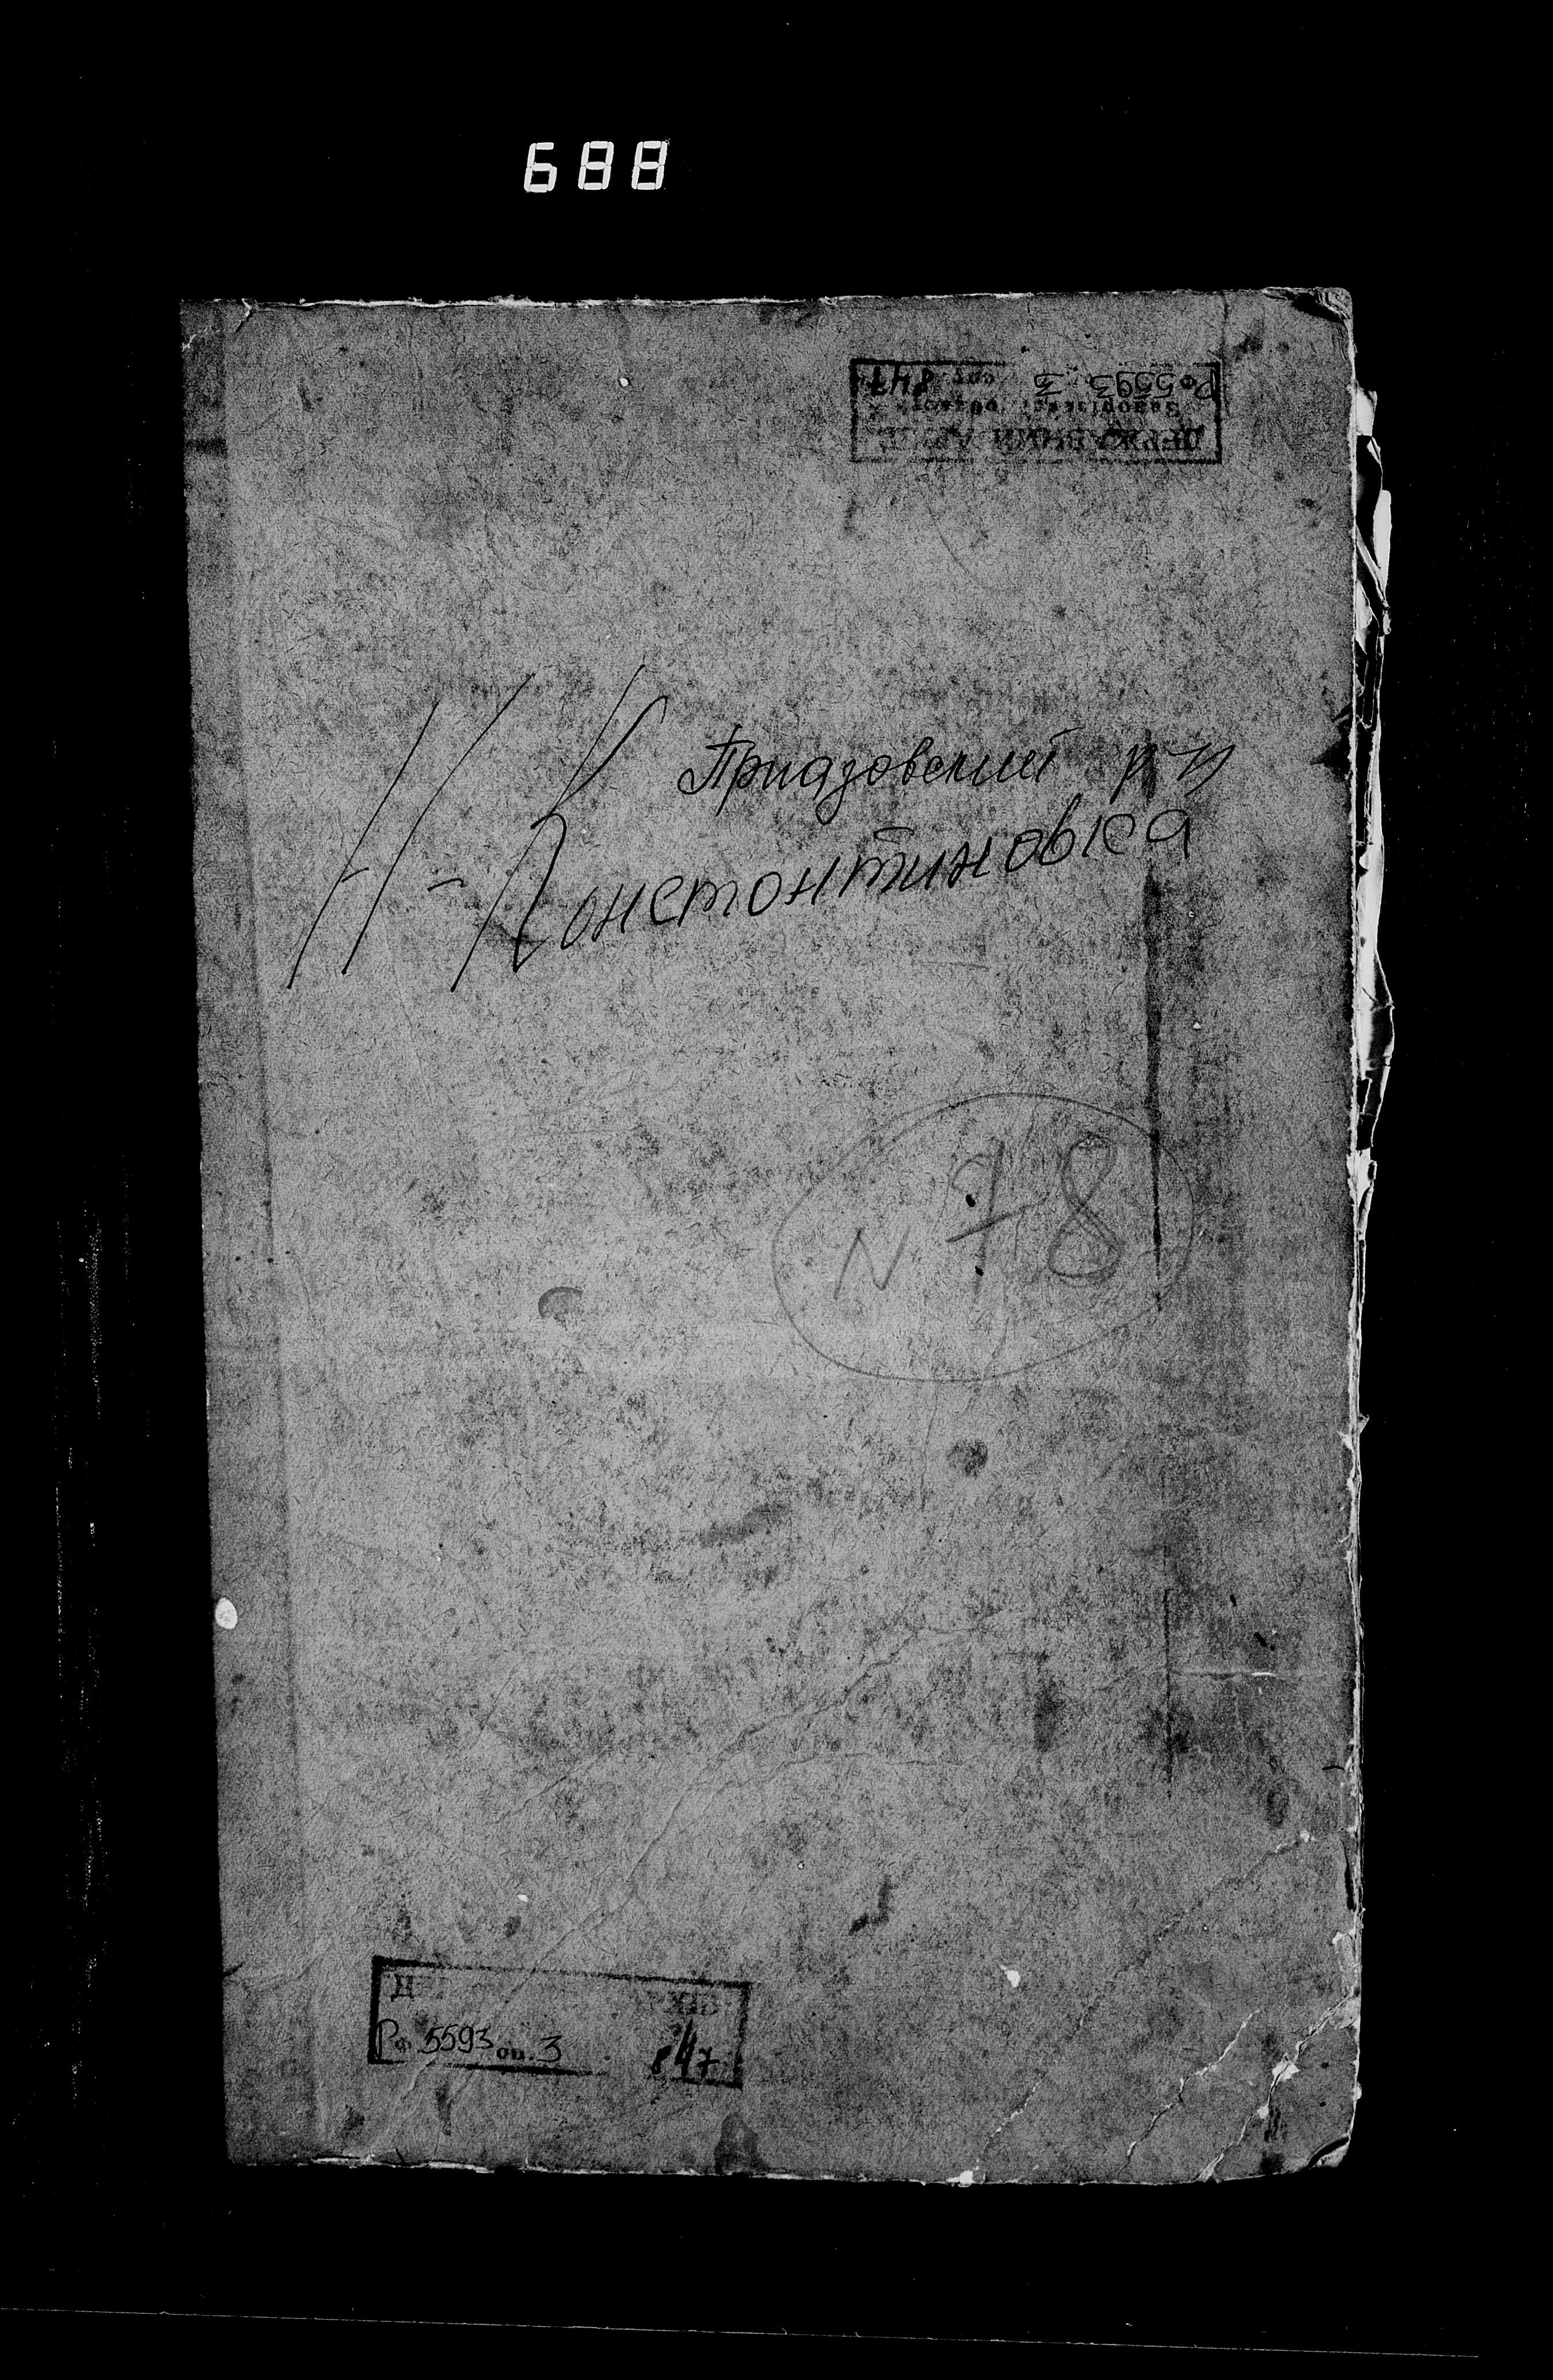 688
ДЕРЖАВНИЙ АРХІВ
Запорізької області
Рф 5593 оп. 3 спр. 847
Приазовский р-н
Н-Константиновка
N 78
Рф 5593 оп. 3 847